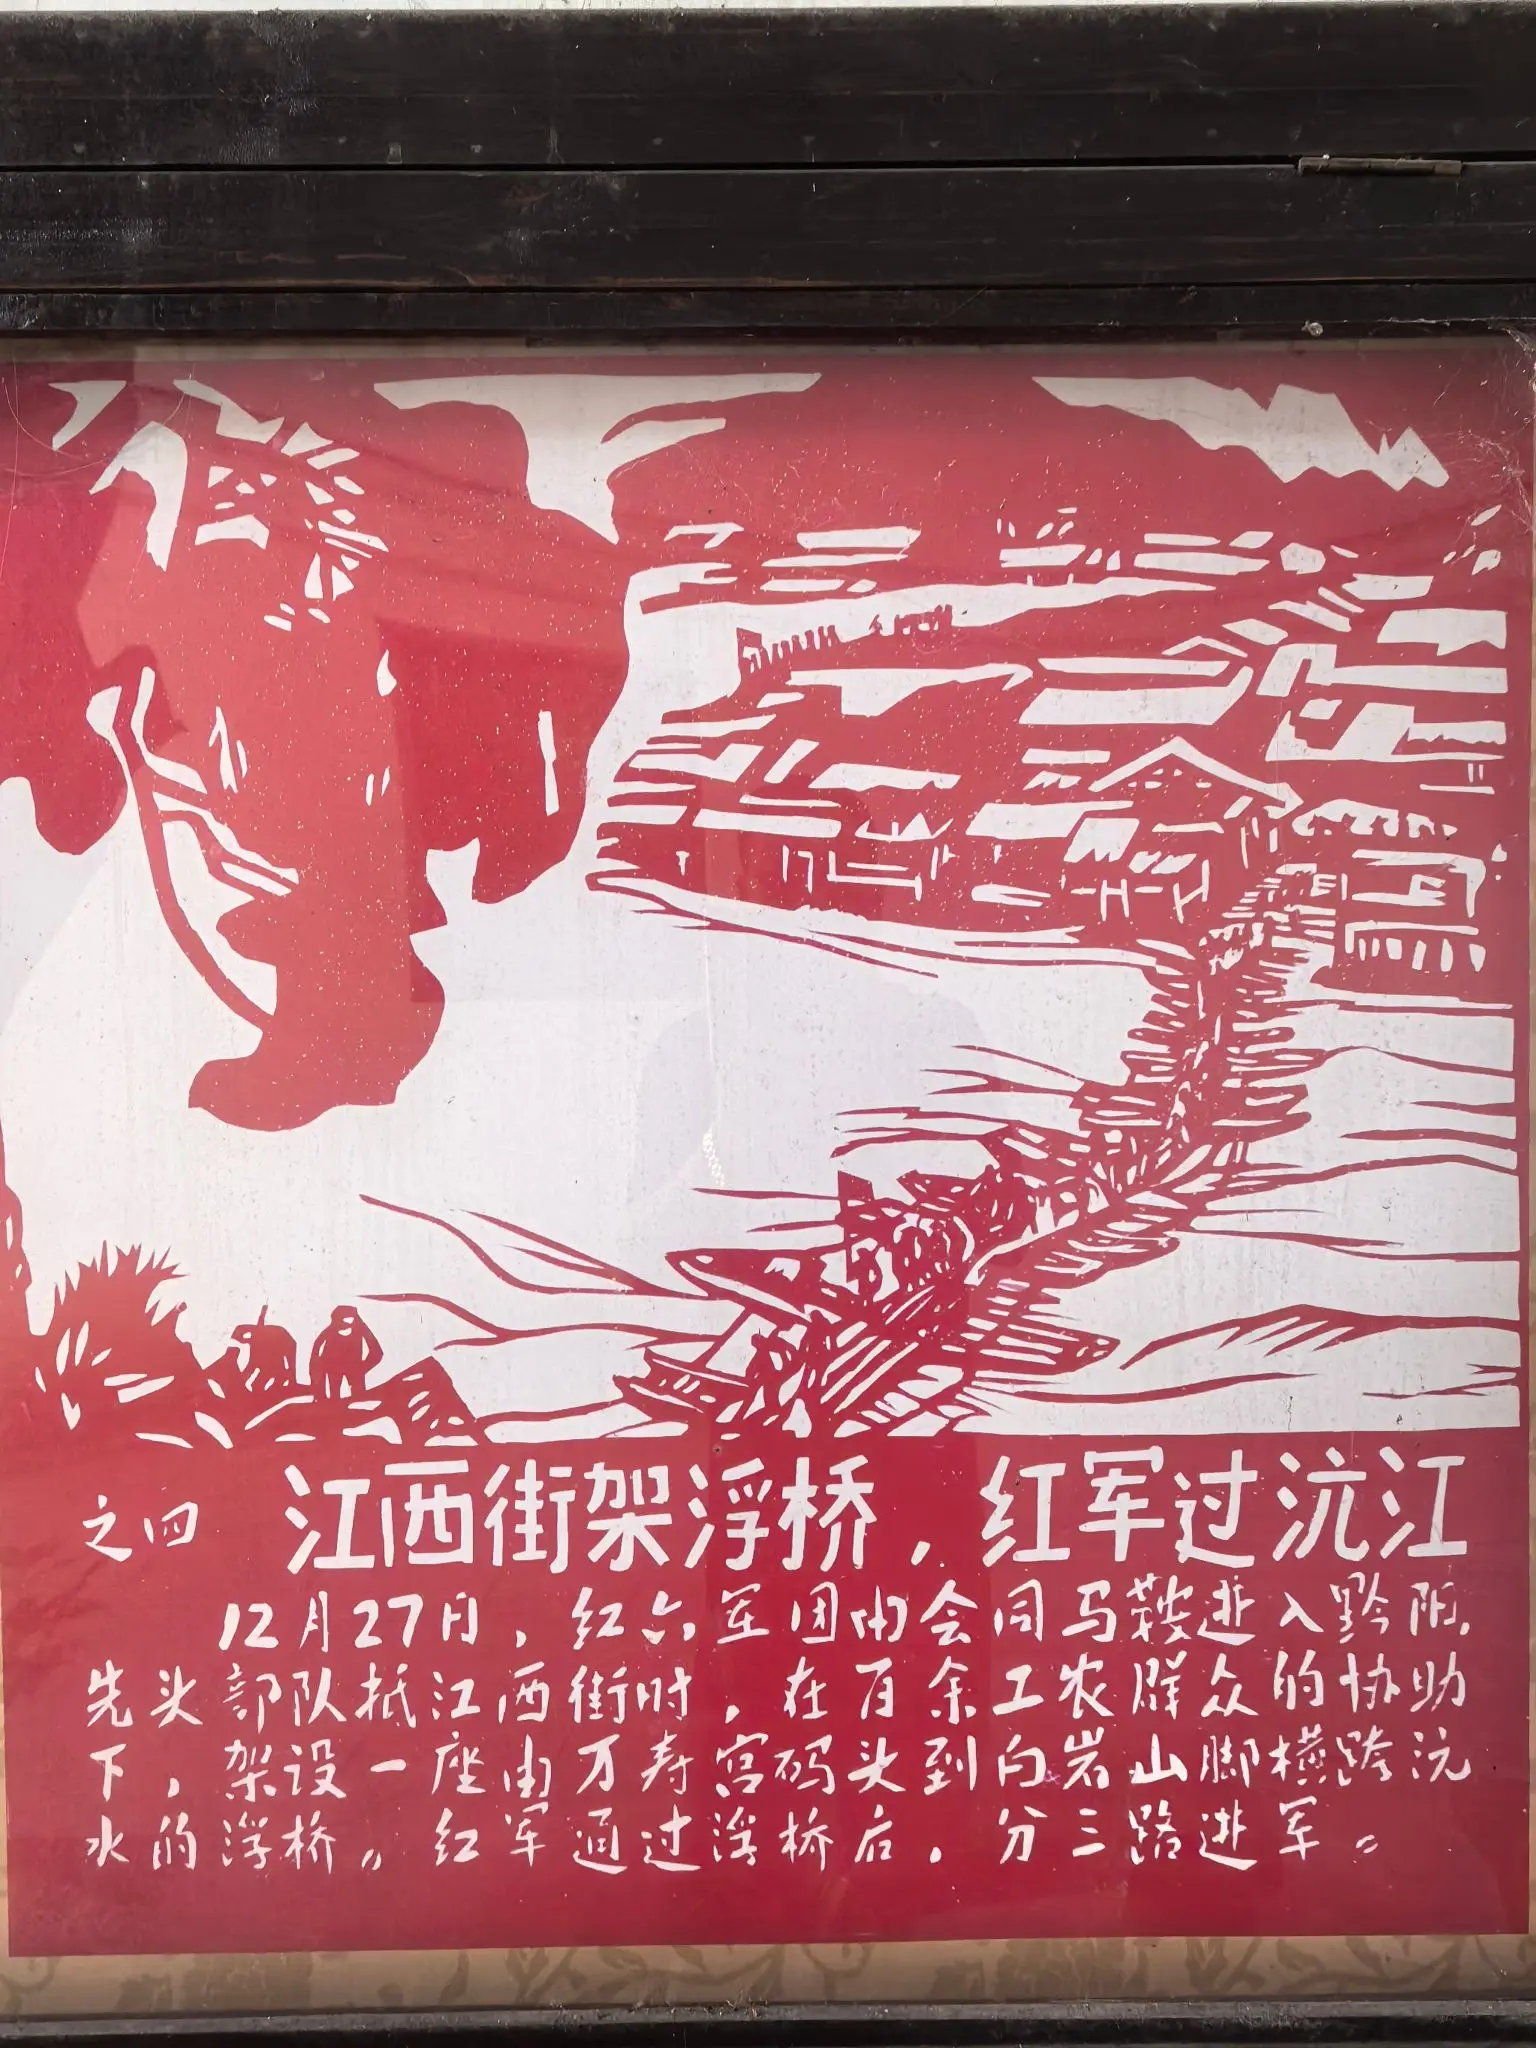 之四 江西街架浮桥，红军过沅江
12月27日，红六军团由会同马鞍进入黔阳，
先头部队抵江西街时，在百余工农群众的协助
下，架设一座由万寿宫码头到白岩山脚横跨沅
水的浮桥。红军通过浮桥后，分三路进军。